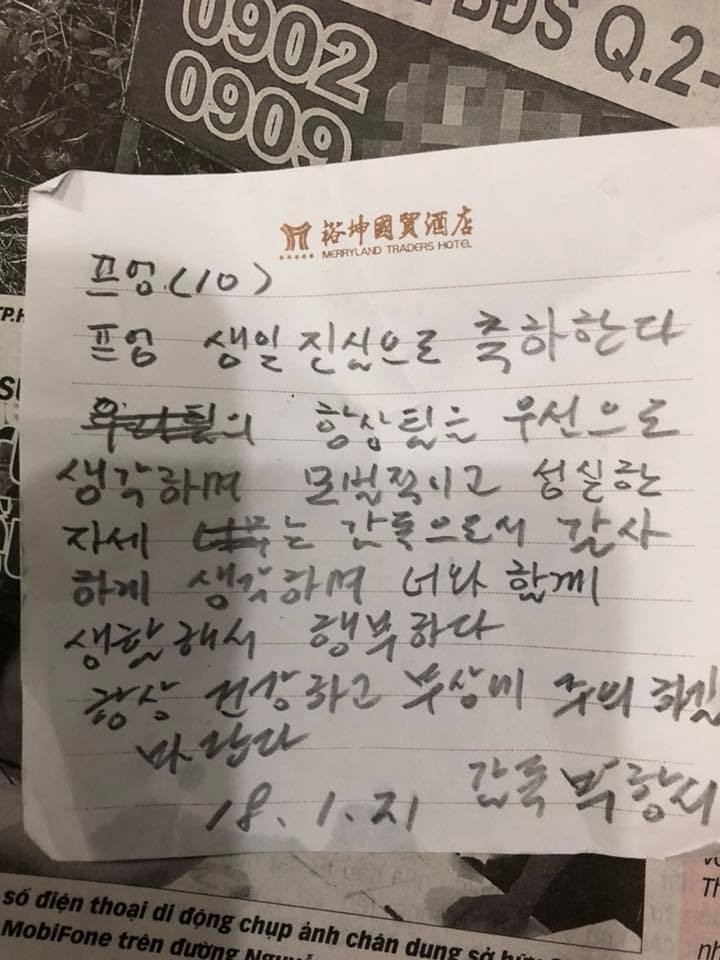 0902
BĐS Q.2-
0909
裕坤國貿酒店
MERRYLAND TRADERS HOTEL
프엉(10)
프엉 생일 진심으로 축하한다
항상팀을 우선으로
생각하며 모범적이고 성실한
자세 는 감독으로서 감사
하게 생각하며 너와 함께
생활해서 행복하다
항상 건강하고 부상미 주의 하길
바란다
감독 박항서
18.1.21
số điện thoại di động chụp ảnh chân dung sở hữu
MobiFone trên đường Nguyễ